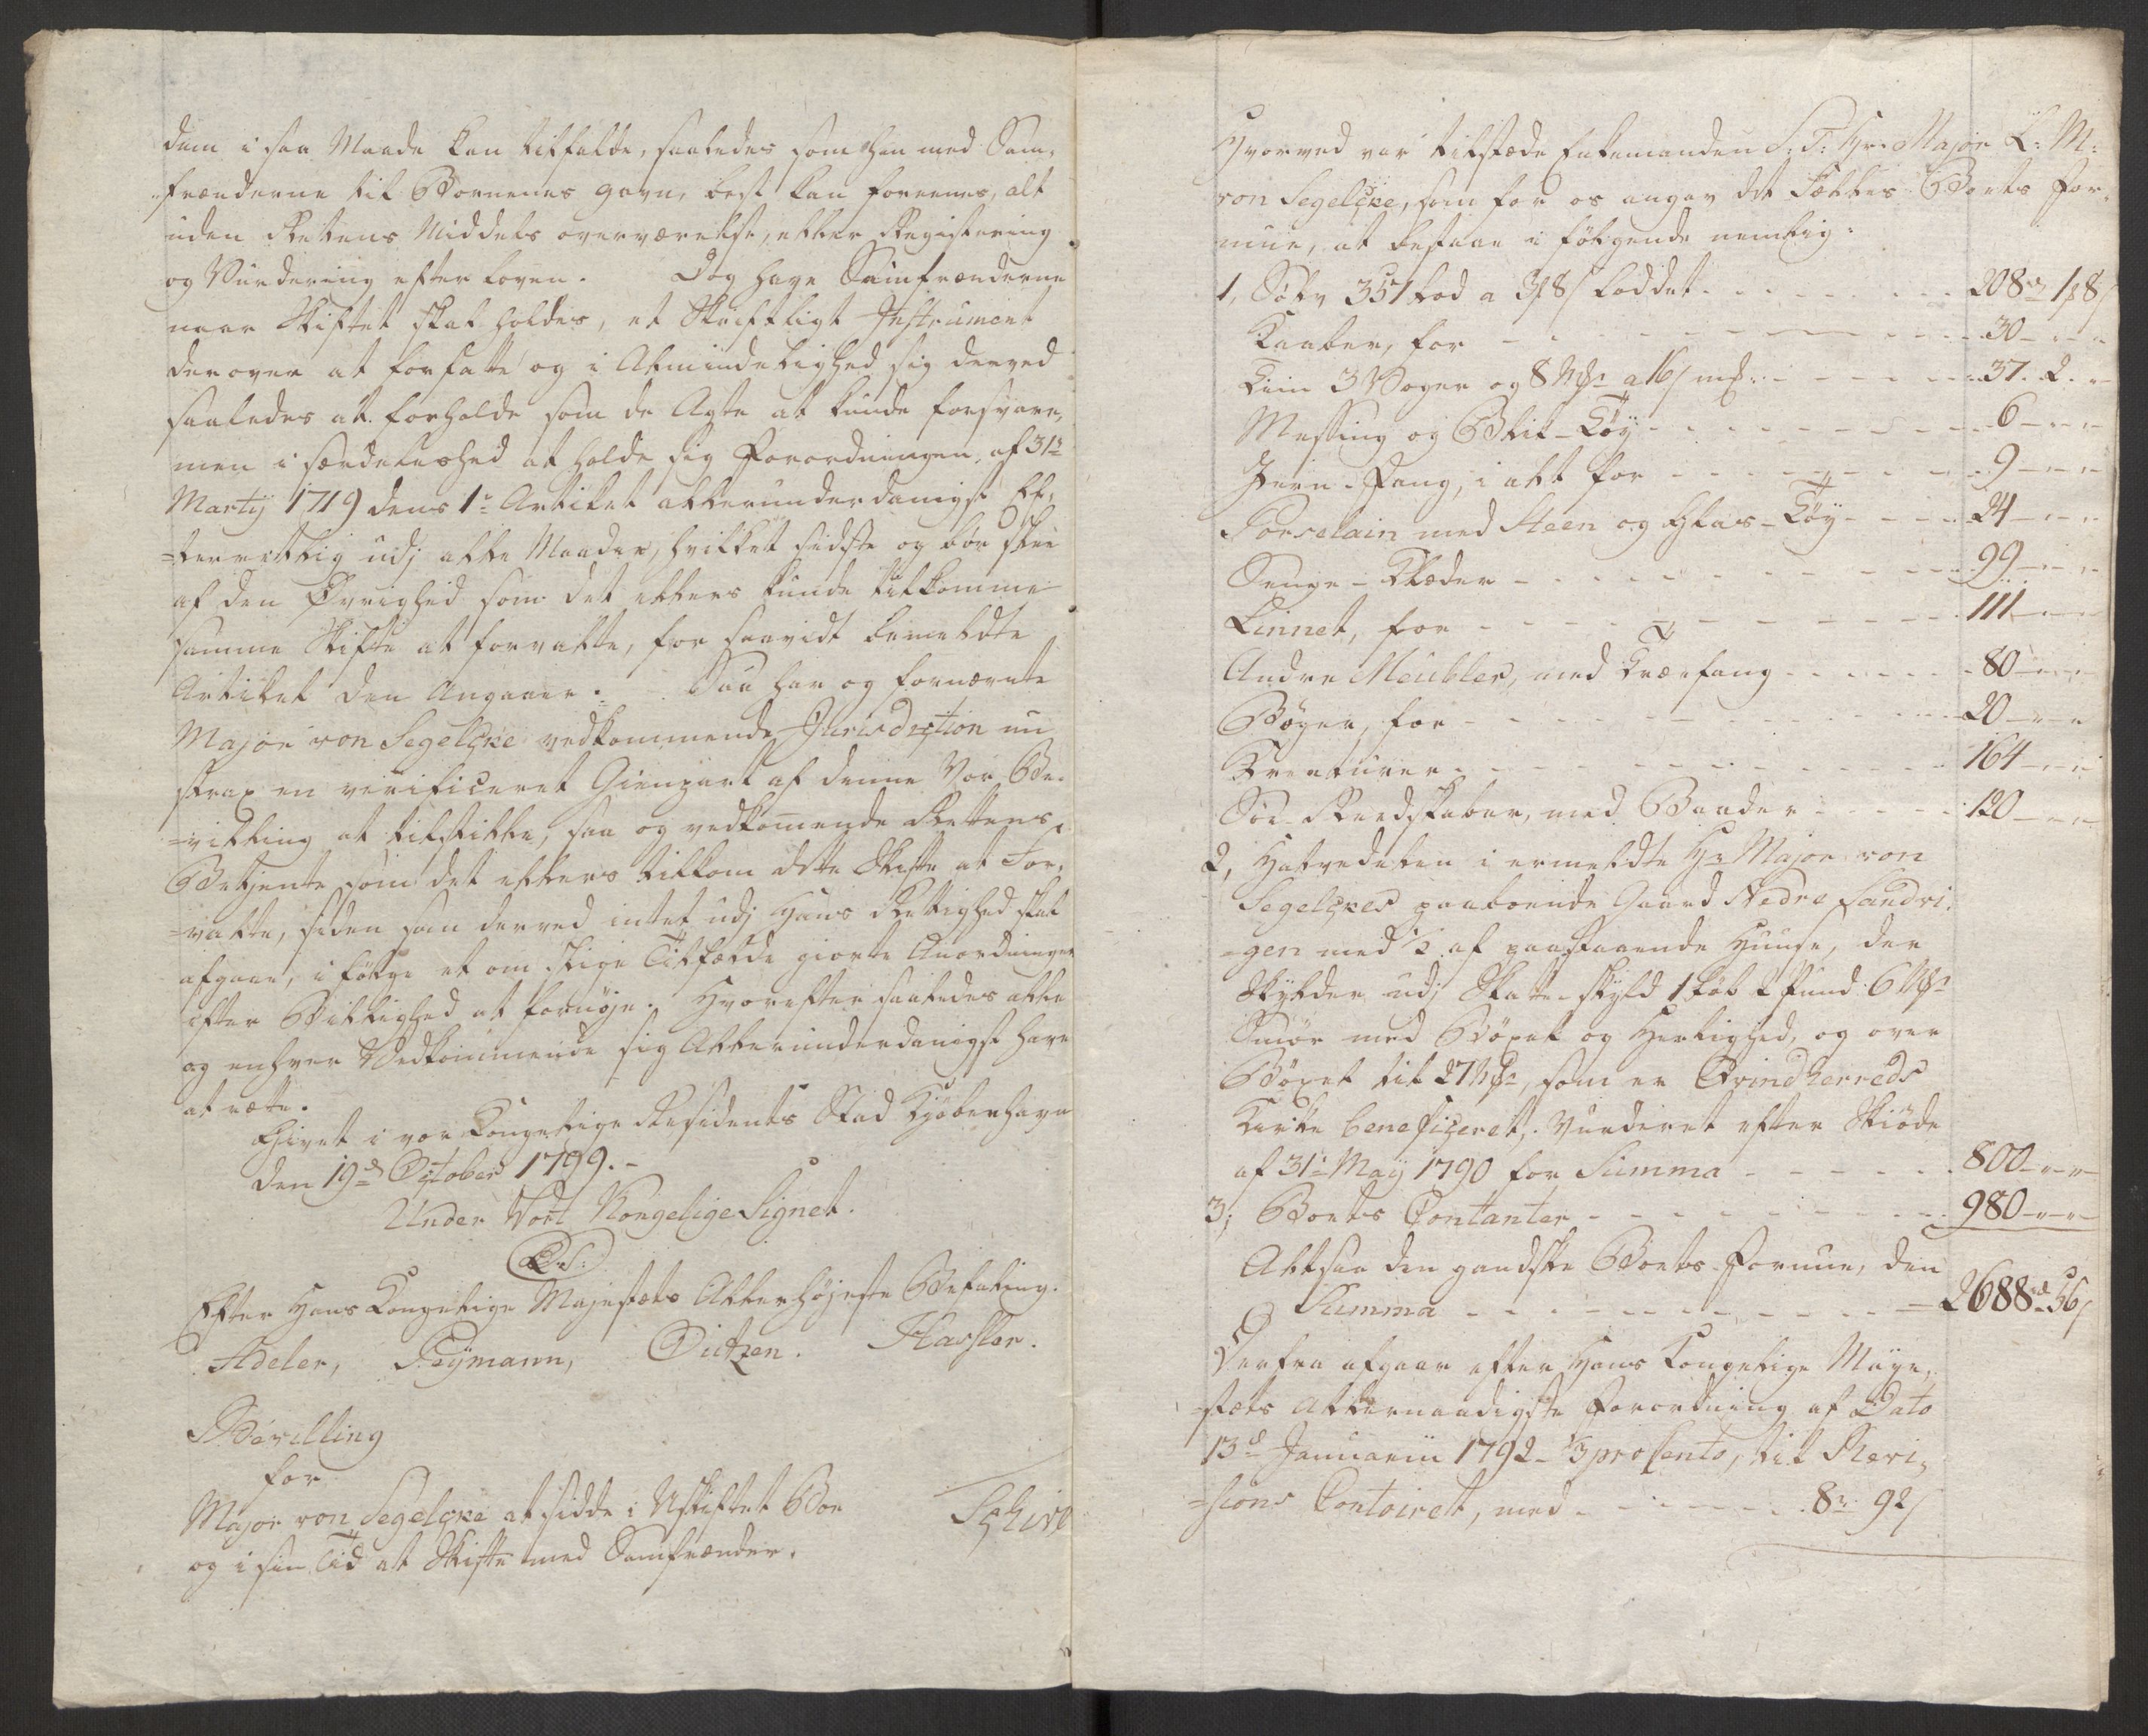 dem i saa Maade kan tilfalde, saaledes som han med Sam-
frænderne til Børnenes gavn, best kan foreenes, alt
uden Rettens Middels overværelse, eller Registering
og Vurdering efter Loven. Dog have Samfrænderne
naar Skiftet skal holdes, et Skriftligt Instrument
derover at forfatte og i Almindelighed sig derved
saaledes at forholde som de Agte at kunde forsvare,
men i særdeleshed at holde sig Forordningen, af 31te
Martij 1719 dens 1te Artikel allerunderdanigst Ef-
=terrettlig udj alle Maader, hvilket sidste og bør skee
af den Øvrighed som det ellers kunde tilkomme
samme Skifte at forvalte, for saavidt bemeldte
Artikel den Angaaer. Saa har og fornævnte
Major von Segelcke vedkommende Jurisdiction nu
strax en verificeret Gienpart af denne Vor Be-
=villing at tilstille, saa og vedkommende Rettens
Betjente som det ellers tilkom dette Skifte at For-
=valte, siden ham derved intet udj Hans Rettighed skal
afgaae, i følge et om slige Tilfælde giorte Anordninger
efter Billighed at fornøje. Hvorefter saaledes alle
og enhver Vedkommende sig Allerunderdanigst have
at rette.
Givet i vor Kongelige Residents Stad Kjøbenhavn
den 19de October 1799.-
Under Vort Kongelige Signet.
L.S.
Efter Hans Kongelige Majestæts Allerhøjeste Befaling.
Adeler, Feÿmann, Dietzen. Hassler.
Bevilling
for
Major von Segelcke at sidde i Uskiftet Boe
og i sin Tid at Skifte med Samfrænder.
Hvorved var tilstæde Enkemanden S: T: Hr. Major L: M:
von Segelcke, som for os angav det Fælles Boets For-
mue, at bestaae i følgende nemlig:
1, Sølv 357 Lod a 3 # 8 s Loddet - - - 208 rd 1 # 8 s
Kaaber, for - - - 30 - " - "
Tiin 3 Voger og 8 Mrk a 16 s mk - - - 37. 2. "
Messing og Blik-Tøÿ - - - 6 - " - "
Jern-Fang, i alt for - - - 9 - " - "
Porcelain med Steen og Glas-Tøÿ - - - 24 - " - "
Senge-Klæder - - - 99 - " - "
Linnet, for - - - 111 - " - "
Andre Meubler, med Træefang - - - 80 - " - "
Bøger, for - - - 20 - " - "
Kreaturer - - - 164 - " - "
Søe-Reedskaber, med Baader - - - 120 - " - "
2, Halvedelen i ermeldte Hr Major von
Segelckes paaboende Gaard Nedre Sandvi-
=gen med ½ af paastaaende Huuse, der
Skylder udj Skatte-skyld 1 Løb 2 Pund 6 Mrk
Smør med Bøxel og Herlighed, og over
Bøxel til 27 Mrk, som er Qvindherreds
Kirke beneficeret, Vurderet efter Skiøde
af 31te Maÿ 1790 for Summa - - - 800 - " - "
3, Boets Contanter - - - 980 - " - "
Altsaa den gandske Boets-Formue, den
Summa - - - 2688 rd 56 s
Derfra afgaar efter Hans Kongelige Maÿe-
=stæts Allernaadigste Forordning af Dato
13de Januarii 1792 - ⅓ pro Cento, til Revi-
=sions Contoiret, med - - - 8 rd 92 s